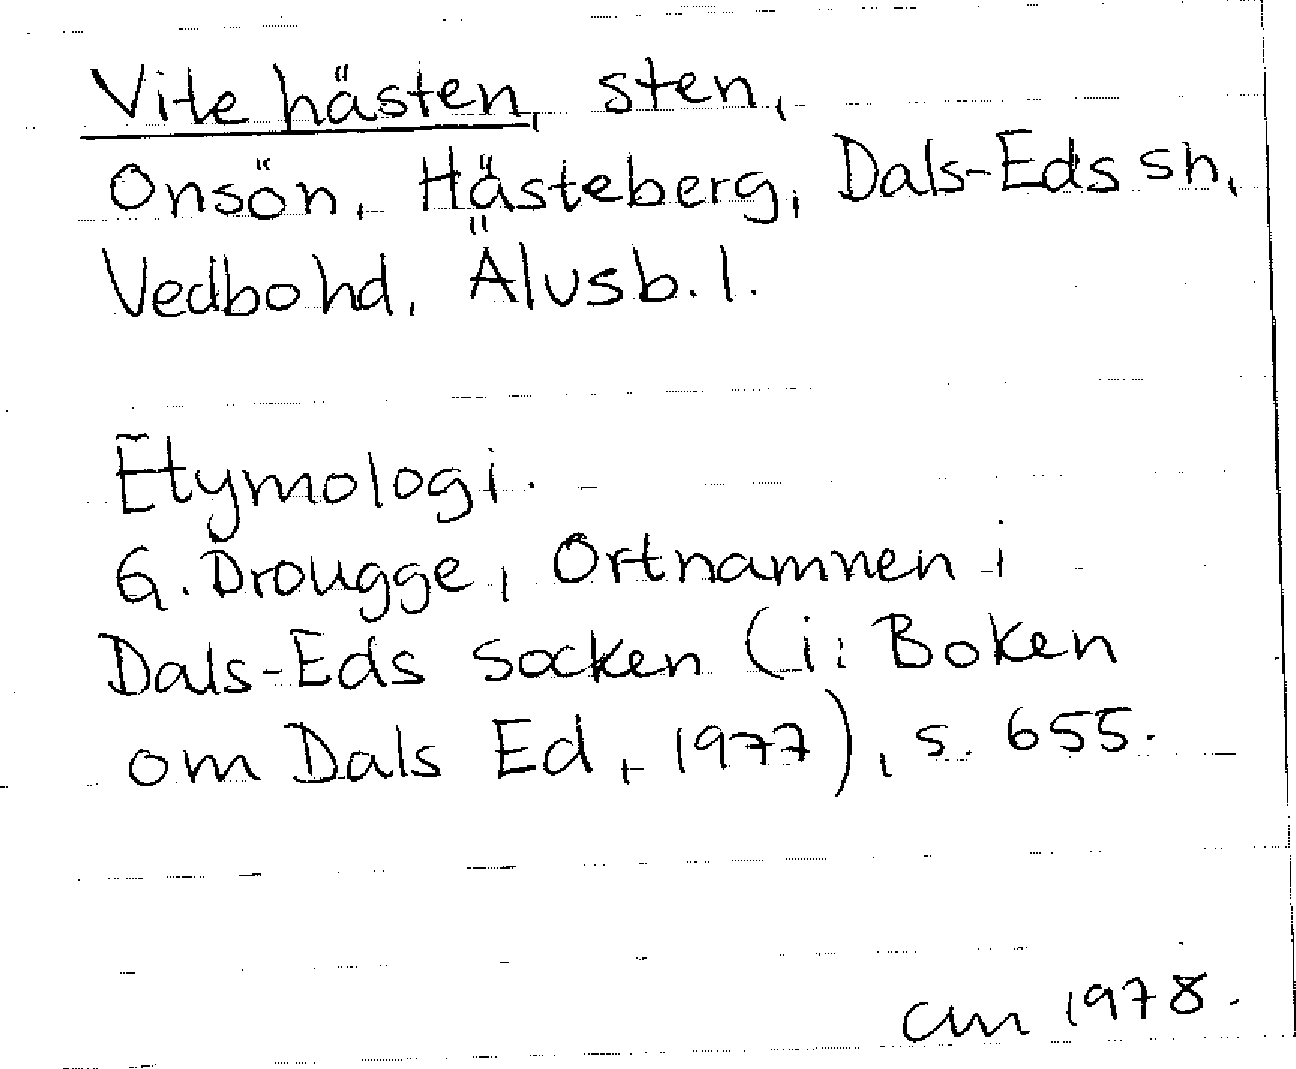 Vite hästen, sten,
Onsön, Hästeberg, Dals-Eds sn,
Vedbo hd, Älvsb. l.
Etymologi.
G. Drougge, Ortnamnen i
Dals-Eds socken (i: Boken
om Dals Ed, 1977), s. 655.
cm 1978.